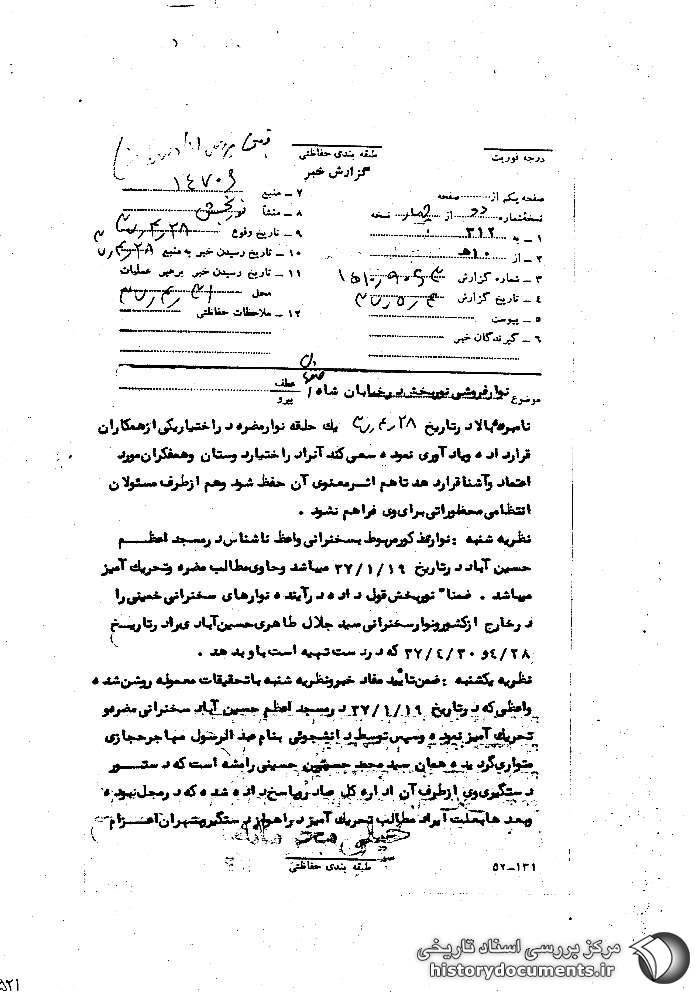 درجه فوریت
طبقه بندی حفاظتی
گزارش خبر
صفحه یکم از صفحه
نسخه شماره دو از چهار نسخه
۱ـ به ۳۱۲
۲ـ از ۱۰هـ
۳ـ شماره گزارش
۴ـ تاریخ گزارش
۵ـ پیوست
۶ـ گیرندگان خبر
۷ـ منبع ۱۴۷۰۶
۸ـ منشأ نوربخش
۹ـ تاریخ وقوع
۱۰ـ تاریخ رسیدن خبر به منبع
۱۱ـ تاریخ رسیدن خبر برهبر عملیات
محل
۱۲ـ ملاحظات حفاظتی
موضوع نوارفروشی نوربخش در خیابان شاه
عطف
پیرو
نامبرده بالا در تاریخ یک حلقه نوار مضره در اختیار یکی از همکاران
قرار داده و یاد آوری نموده سعی کند آنرا در اختیار دوستان و همفکران مورد
اعتماد و آشنا قرار دهد تا هم اثر معنوی آن حفظ شود و هم از طرف مسئولان
انتظامی محظوراتی برای وی فراهم نشود .
نظریه شنبه : نوار مذکور مربوط بسخنرانی واعظ ناشناس در مسجد اعظم
حسین آباد در تاریخ ۳۷/۱/۱۹ میباشد و حاوی مطالب مضره و تحریک آمیز
میباشد . ضمنا" نوربخش قول داده در آینده نوارهای سخنرانی خمینی را
در خارج از کشور و نوار سخنرانی سید جلال طاهری حسین آبادی را در تاریخ
۴/۲۸ و ۳۷/۴/۳۰ که در دست تهیه است باو بدهد .
نظریه یکشنبه : ضمن تأیید مفاد خبر و نظریه شنبه با تحقیقات معموله روشن شده
واعظی که در تاریخ ۳۷/۱/۱۹ در مسجد اعظم حسین آباد سخنرانی مضره و
تحریک آمیز نموده و سپس توسط دانشجوئی بنام عبدالرسول مهاجر حجازی
متواری گردیده همان سید محمد حسینی رامشه است که دستور
دستگیری وی از طرف آن اداره کل صادر و پاسخ داده شده که در محل نبوده
و بعدها بعلت ایراد مطالب تحریک آمیز در اهواز دستگیر و بتهران اعزام
طبقه بندی حفاظتی
۵۲-۱۳۱
مرکز بررسی اسناد تاریخی
historydocuments.ir
۵۲۱